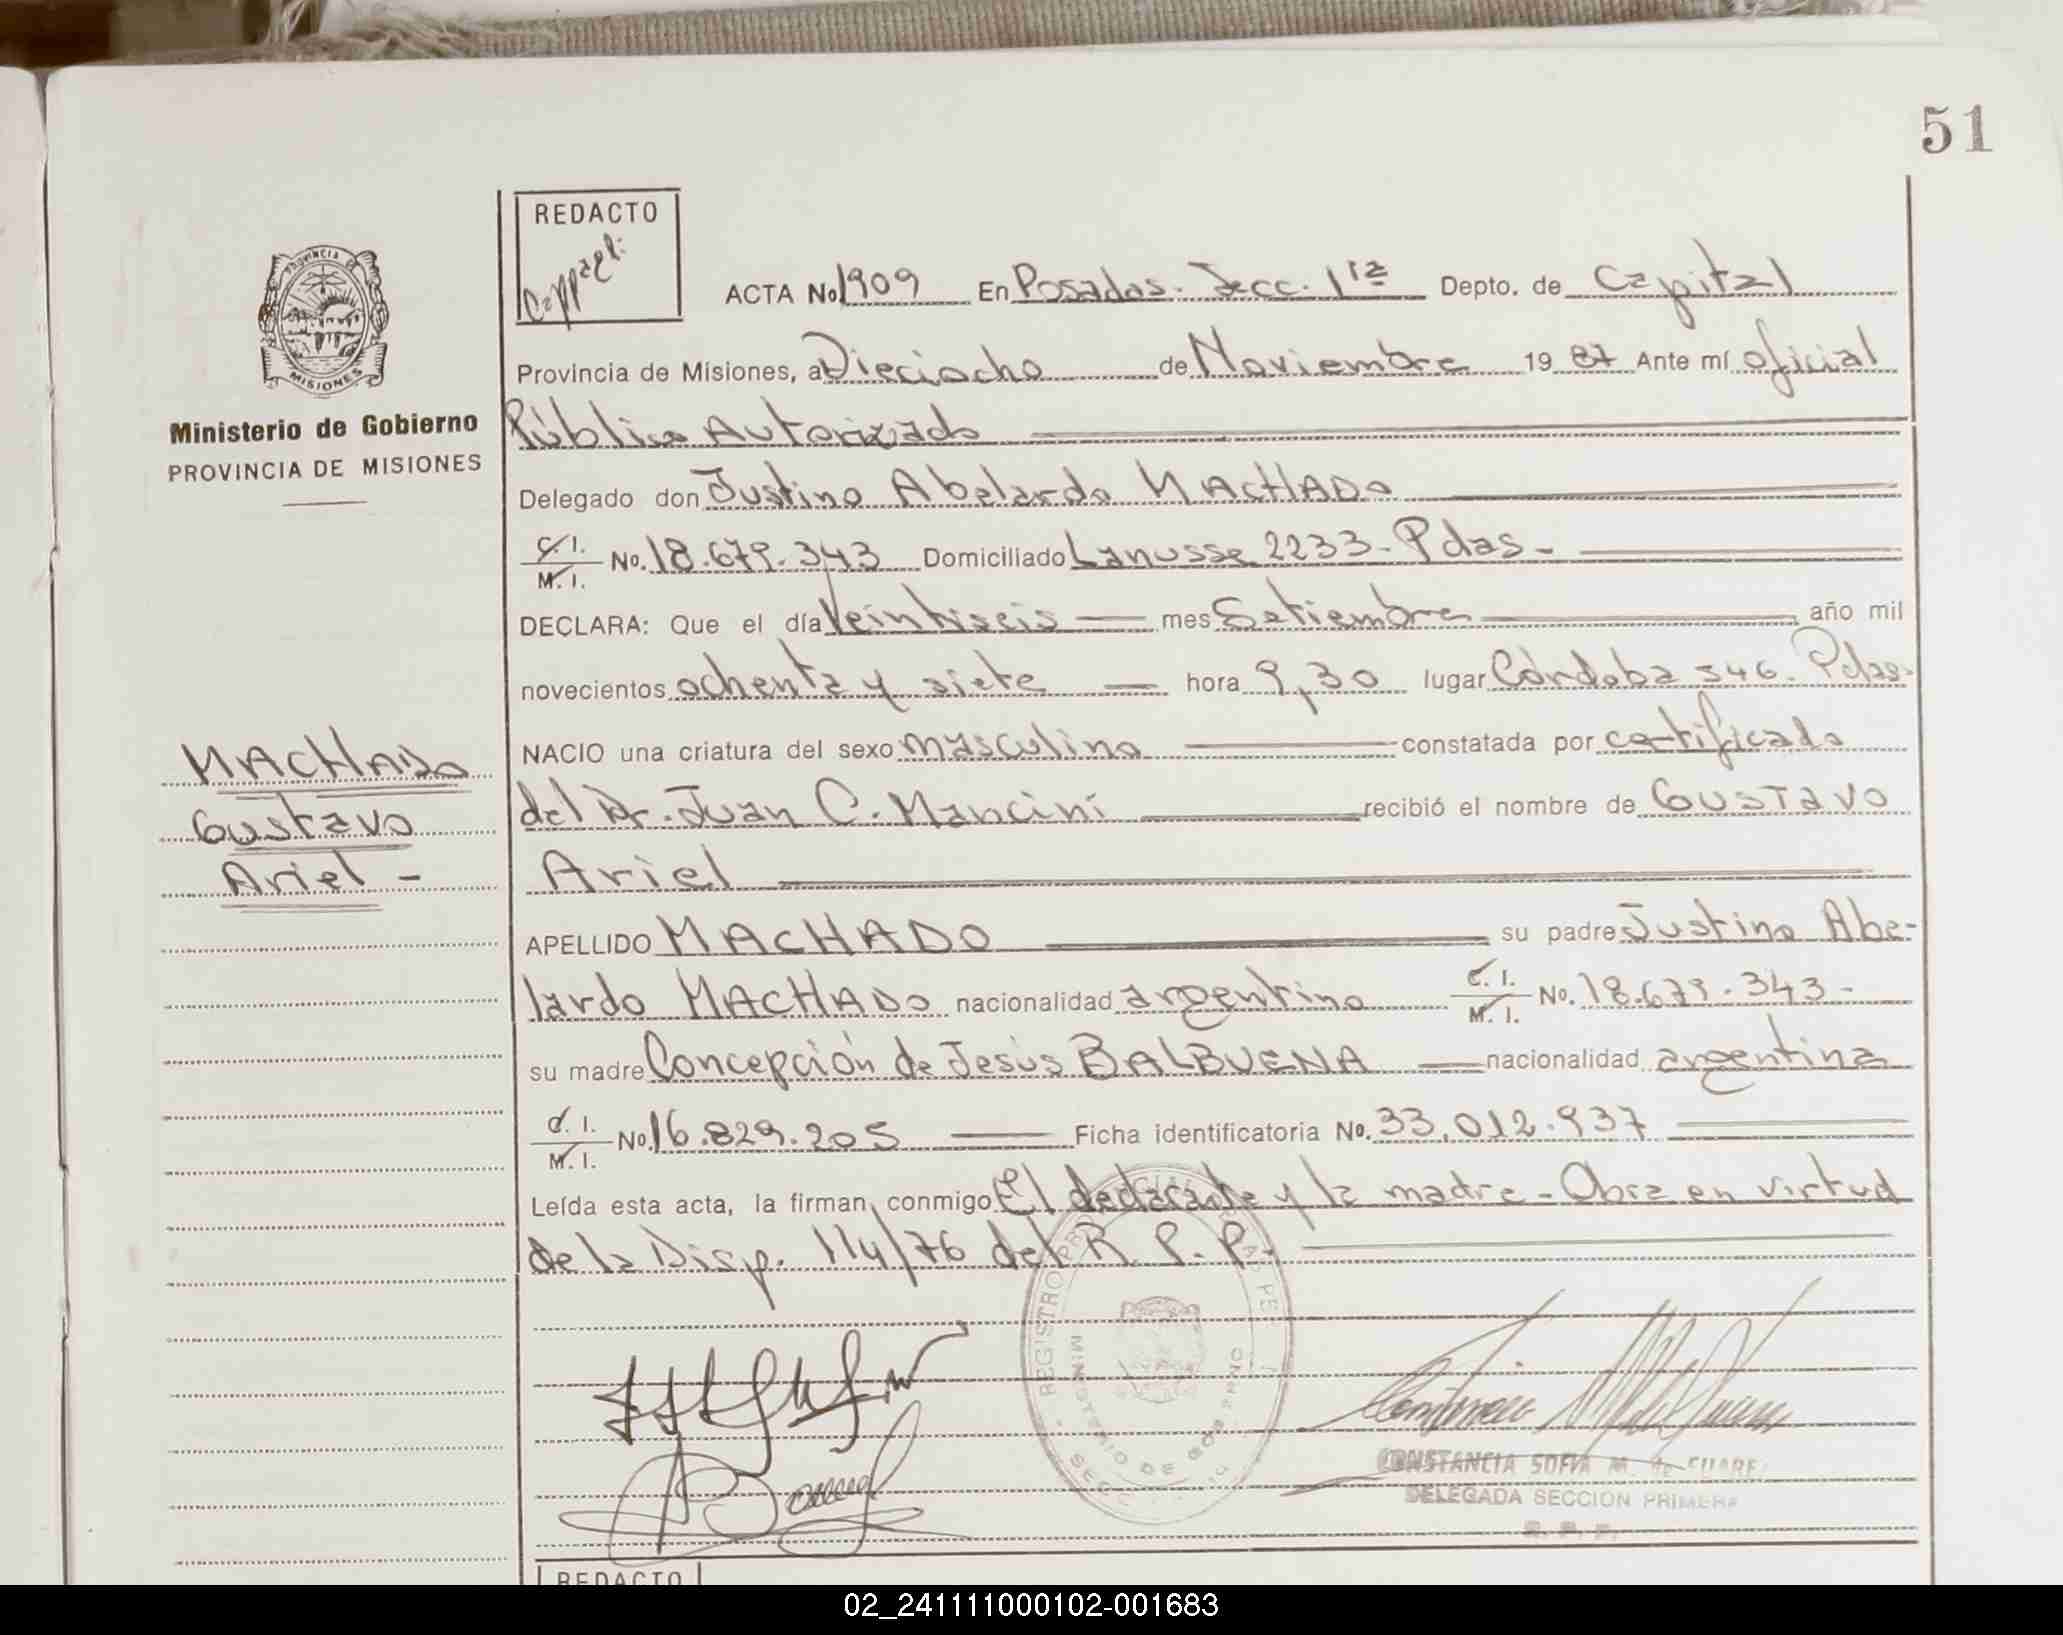 51
REDACTO
PROVINCIA DE
MISIONES
ACTA No. 1909 En Posadas. Secc. 1ra Depto. de Capital
Provincia de Misiones, a Dieciocho de Noviembre 19 87 Ante mí oficial
Ministerio de Gobierno
PROVINCIA DE MISIONES
Público Autorizado
Delegado don Justino Abelardo MACHADO
C. I.
M. I. No. 18.679.343 Domiciliado Lanusse 2233 - Pdas -
DECLARA: Que el día Veintiseis mes Setiembre año mil
novecientos ochenta y siete hora 9,30 lugar Córdoba 546. Pdas.
MACHADO
Gustavo
Ariel -
NACIO una criatura del sexo masculino constatada por certificado
del Dr. Juan C. Mancini recibió el nombre de GUSTAVO
Ariel
APELLIDO MACHADO su padre Justino Abe-
lardo MACHADO nacionalidad argentino C. I. M. I. No. 18.679.343 -
su madre Concepción de Jesús BALBUENA nacionalidad argentina
C. I.
M. I. No. 16.829.205 Ficha identificatoria No. 33.012.937
Leída esta acta, la firman conmigo El declarante y la madre - Obra en virtud
de la Disp. 114/76 del R. P. P.
REGISTRO
MINISTERIO DE GOBIERNO
CONSTANCIA SOFIA M. de
DELEGADA SECCION PRIMERA
R. P. P.
REDACTO
02_241111000102-001683